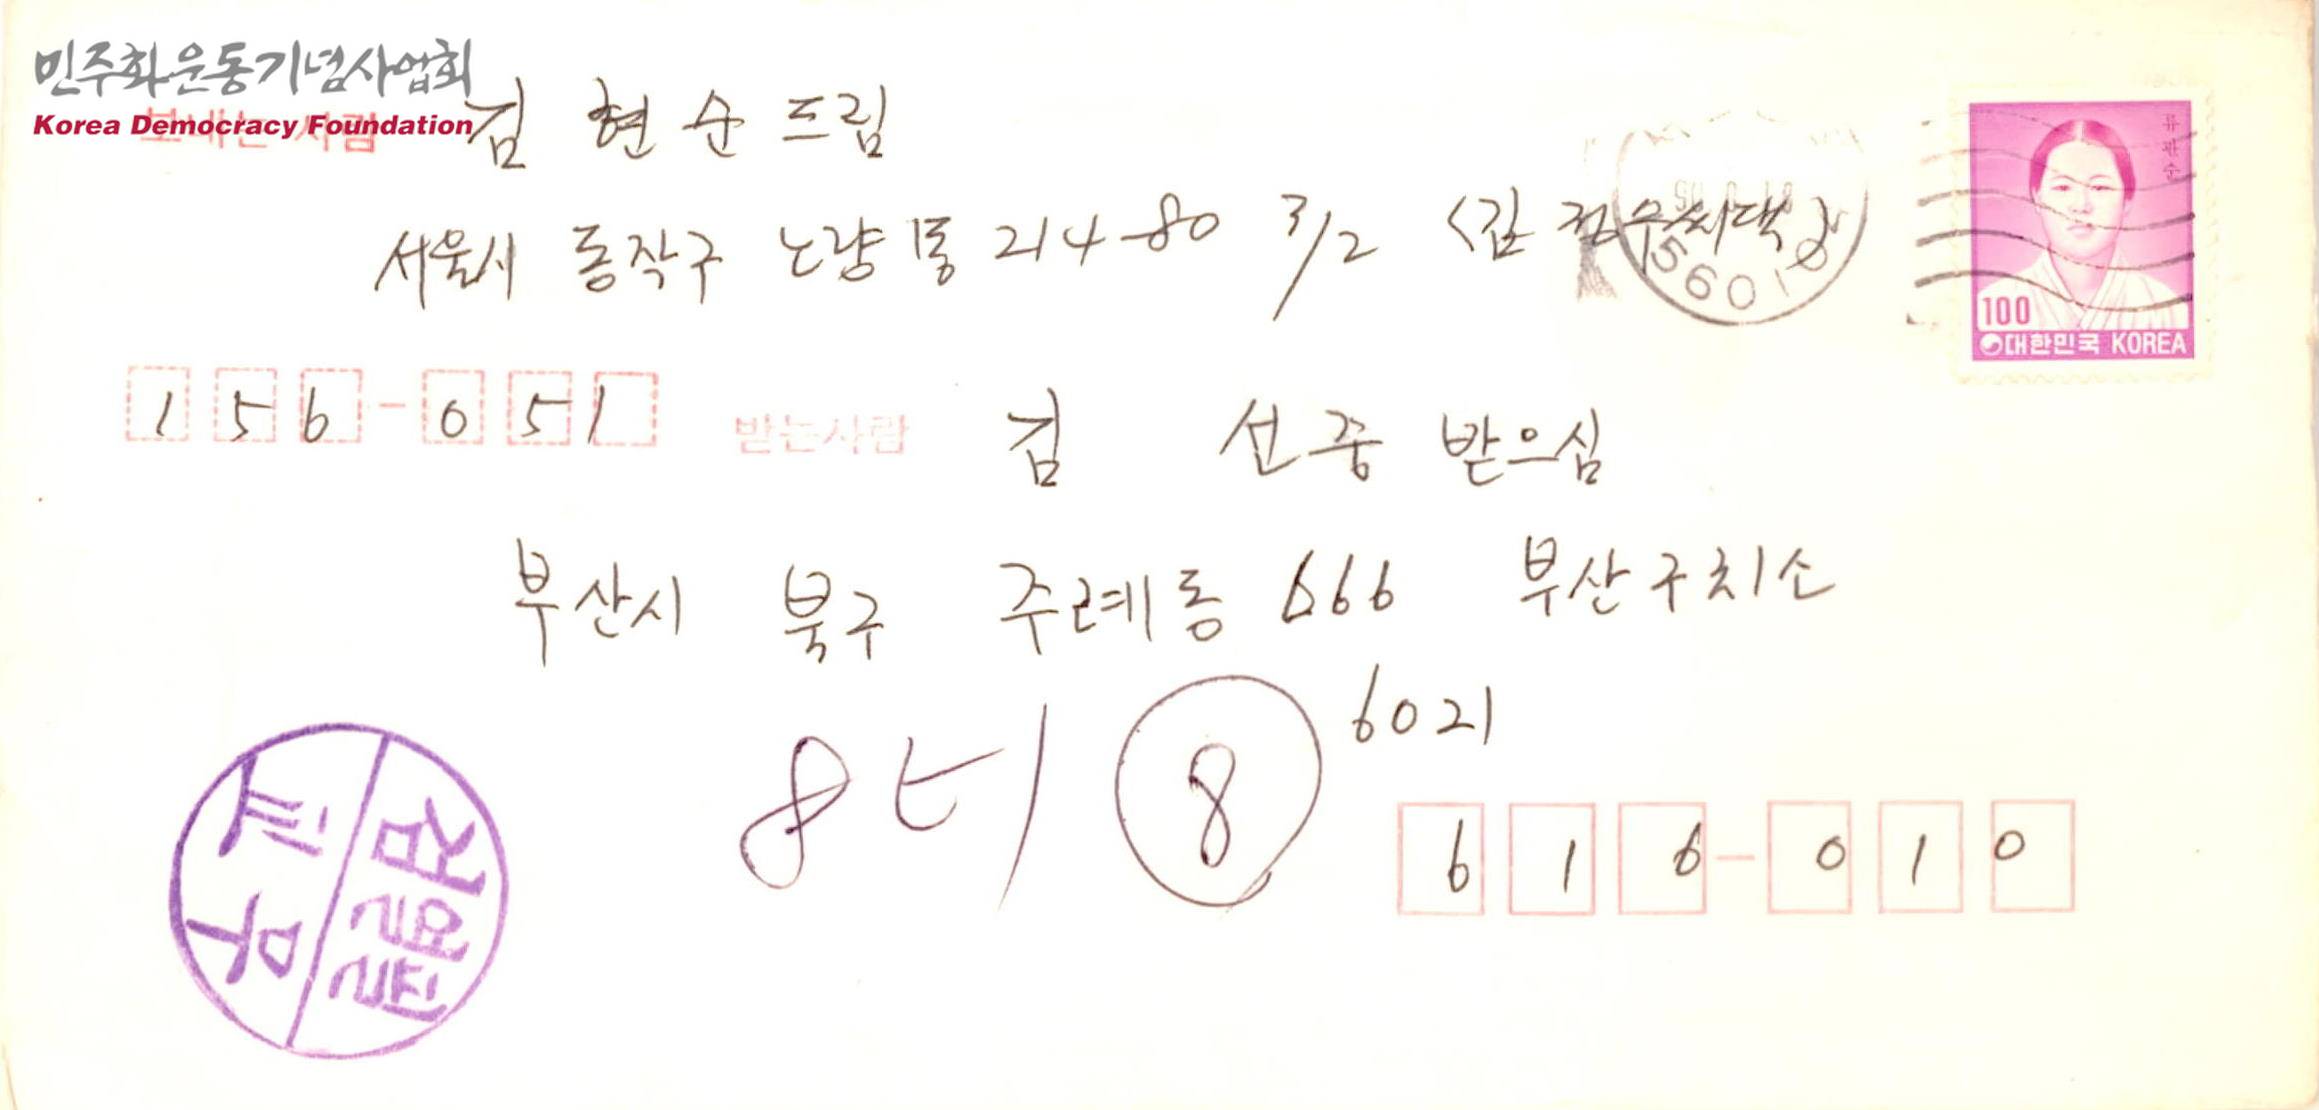 민주화운동기념사업회
Korea Democracy Foundation
보내는 사람
김 현순드림
서울시 동작구 노량진동 214-80 3/2 <김 정수씨댁>
류관순
100
대한민국 KOREA
156-051
받는사람
김 선중 받으심
부산시 북구 주례동 666 부산구치소
6021
8
8
616-010